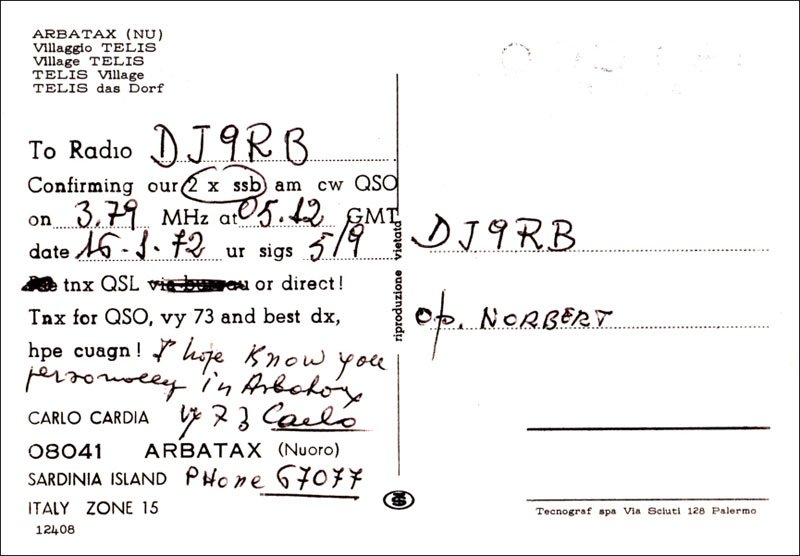 ARBATAX (NU)
Villaggio TELIS
Village TELIS
TELIS Village
TELIS das Dorf
To Radio DJ9RB
Confirming our 2 x ssb am cw QSO
on 3.79 MHz at 05.12 GMT
date 16-1-72 ur sigs 5/9
tnx QSL via bureau or direct!
Tnx for QSO, vy 73 and best dx,
hpe cuagn! I hope know you
personally in Arbatax
CARLO CARDIA vy 73 Carlo
08041 ARBATAX (Nuoro)
SARDINIA ISLAND PHone 67077
ITALY ZONE 15
12408
riproduzione vietata
DJ9RB
op. NORBERT
Tecnograf spa Via Sciuti 128 Palermo